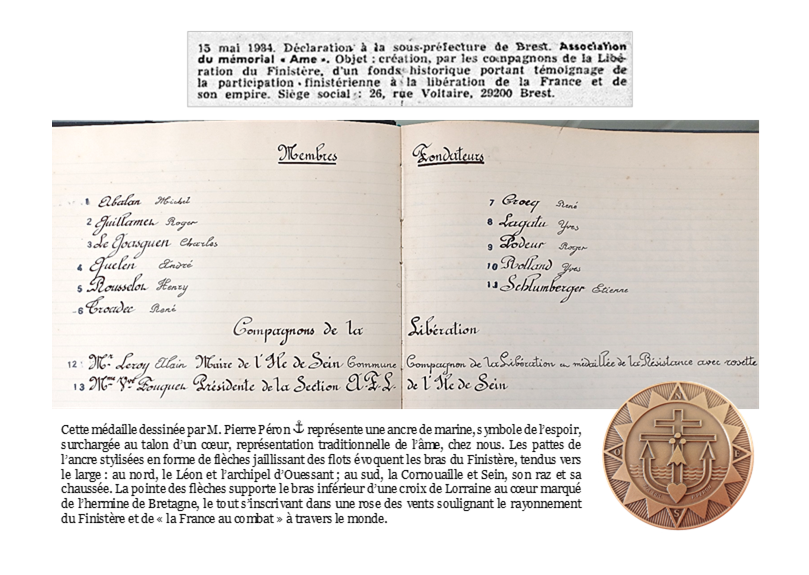 15 mai 1984. Déclaration à la sous-préfecture de Brest. Association
du mémorial « Ame ». Objet : création, par les compagnons de la Libé-
ration du Finistère, d'un fonds historique portant témoignage de
la participation finistérienne à la libération de la France et de
son empire. Siège social : 26, rue Voltaire, 29200 Brest.
Membres Fondateurs
1 Abalan Michel
2 Guillamet Roger
3 Le Goasguen Charles
4 Quelen André
5 Rousselot Henry
6 Troadec René
7 Crocq René
8 Lagatu Yves
9 Podeur Roger
10 Rolland Yves
11 Schlumberger Etienne
Compagnons de la Libération
12 Mr Leroy Alain Maire de l'Ile de Sein Commune Compagnon de la Libération médaillée de la Résistance avec rosette
13 Mme Vve Fouquet Présidente de la Section A.F.L. de l'Ile de Sein
Cette médaille dessinée par M. Pierre Péron ⚓ représente une ancre de marine, symbole de l'espoir,
surchargée au talon d'un cœur, représentation traditionnelle de l'âme, chez nous. Les pattes de
l'ancre stylisées en forme de flèches jaillissant des flots évoquent les bras du Finistère, tendus vers
le large : au nord, le Léon et l'archipel d'Ouessant ; au sud, la Cornouaille et Sein, son raz et sa
chaussée. La pointe des flèches supporte le bras inférieur d'une croix de Lorraine au cœur marqué
de l'hermine de Bretagne, le tout s'inscrivant dans une rose des vents soulignant le rayonnement
du Finistère et de « la France au combat » à travers le monde.
N
O
E
S